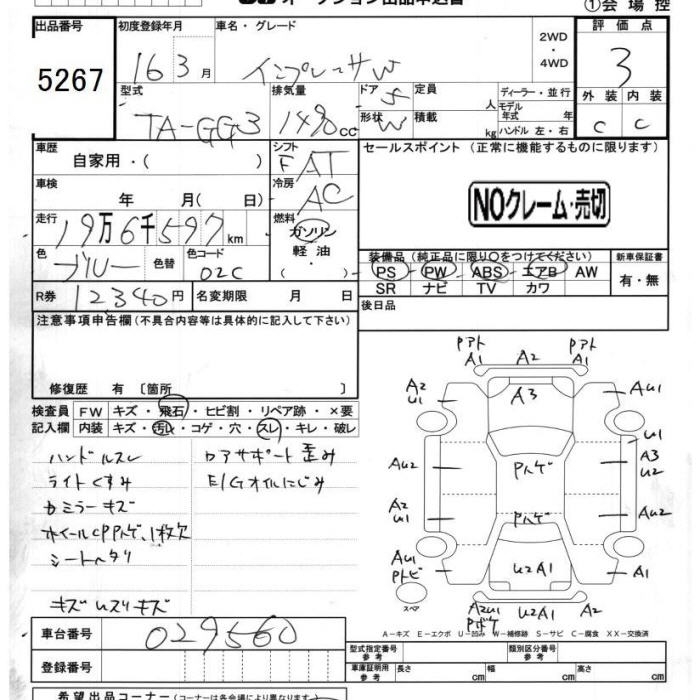 オークション出品申込書 ①会場控
出品番号 初度登録年月 車名・グレード 2WD ・ 4WD 評価点
5267 16 3月 インプレッサW 3
型式 排気量 ドア 定員 人 ディーラー・並行 外装 内装
TA-GG3 1490cc 5 形状 W 積載 kg モデル年式 年 ハンドル 左・右 C C
車歴 自家用・( ) シフト FAT セールスポイント (正常に機能するものに限ります)
車検 年 月( 日) 冷房 AC
NOクレーム・売切
走行 19万6千597km 燃料 ガソリン 軽油・
色 ブルー 色替 色コード 02C
装備品 (純正品に限り○をつけてください) 新車保証書
PS PW ABS エアB AW 有・無
SR ナビ TV カワ
R券 12340円 名変期限 月 日 後日品
注意事項申告欄 (不具合内容等は具体的に記入して下さい)
修復歴 有 〔箇所 〕
検査員 FW キズ・飛石・ヒビ割・リペア跡・×要
記入欄 内装 キズ・汚れ・コゲ・穴・スレ・キレ・破レ
ハンドルスレ ロアサポート歪み
ライトくすみ E/Gオイルにじみ
カミラーキズ
ホイールCPハゲ、1枚欠
シートヘタリ
キズ Uズリキズ
Pアト A1 A2 Pアト A1
A2 U1 A3 AU1
U1
AU2 Pハゲ A3 U2
A2 U1 Pハゲ AU2
AU1 Pトビ U2A1 A1
スペア A2U1 Pボケ U2A1 A2
A-キズ E-エクボ U-凹み W-補修跡 S-サビ C-腐食 XX-交換済
車台番号 029560
型式指定番号 参考 類別区分番号 参考
登録番号 車庫証明用 参考 長さ cm 幅 cm 高さ cm
希望出品コーナー (コーナーは各会場により異なります)